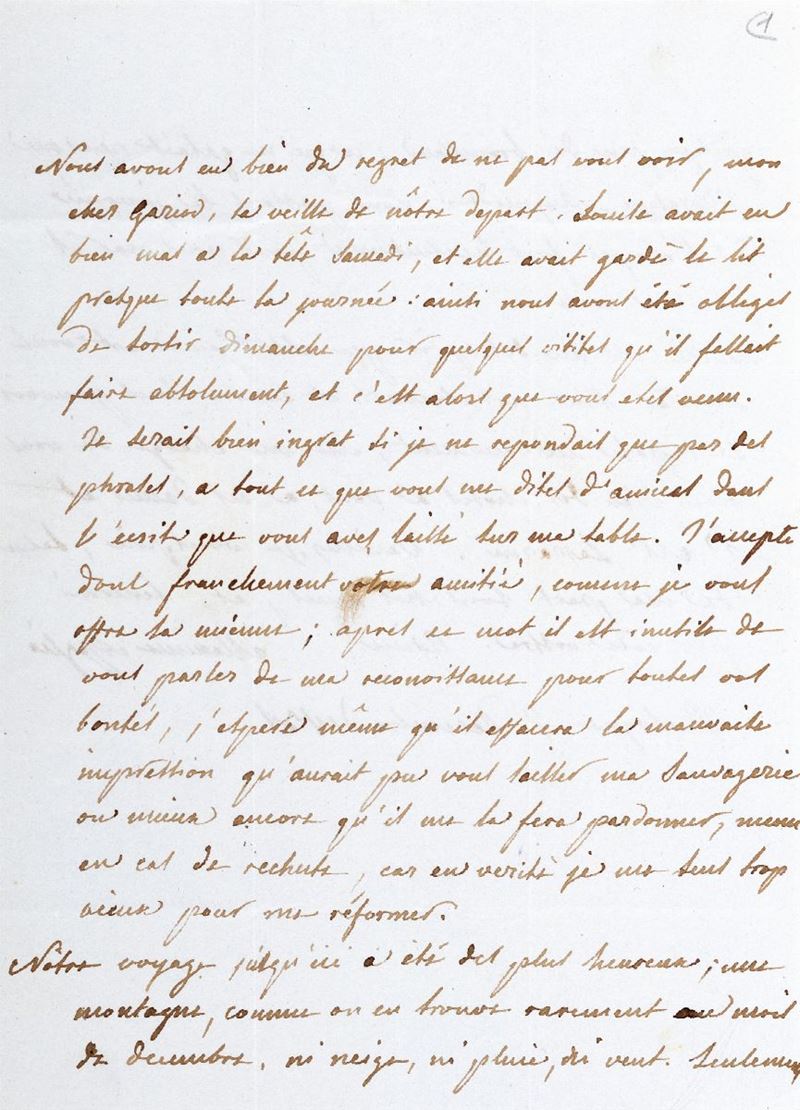 1
Nous avons eu bien du regret de ne pas vous voir, mon
cher Gariod, la veille de nôtre depart. Louise avait eu
bien mal a la tête samedi, et elle avait gardé le lit
presque toute la journée : ainsi nous avons été obligés
de sortir dimanche pour quelques visites qu'il fallait
faire absolument, et c'est alors que vous etes venu.
Je serais bien ingrat si je ne repondais que par des
phrases, a tout ce que vous me dites d'amical dans
l'écrit que vous avez laissé sur ma table. J'accepte
donc franchement vôtre amitié, comme je vous
offre la mienne ; apres ce mot il est inutile de
vous parler de ma reconoissance pour toutes vos
bontés, j'espere même qu'il effacera la mauvaise
impression qu'aurait pu vous laisser ma sauvagerie
ou mieux ancore qu'il me la fera pardonner, meme
en cas de rechute, car en verité je me sens trop
vieux pour me réformer.
Nôtre voyage jusqu'ici a été des plus heureux ; une
montagne, comme on en trouve rarement au mois
de decembre, ni neige, ni pluie, ni vent. Seulement